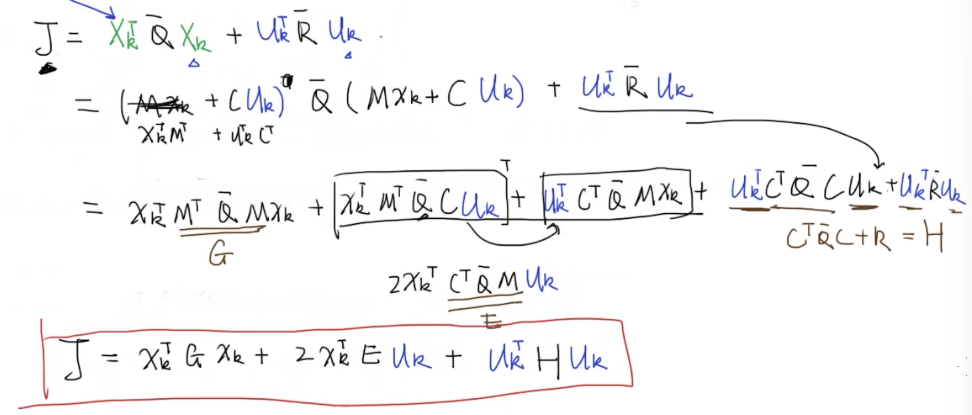 J = X_k^T Q̄ X_k + U_k^T R̄ U_k .
= (M x_k + C U_k)^T Q̄ (M x_k + C U_k) + U_k^T R̄ U_k
x_k^T M^T + u_k^T C^T
= x_k^T M^T Q̄ M x_k + x_k^T M^T Q̄ C U_k + U_k^T C^T Q̄ M x_k + U_k^T C^T Q̄ C U_k + U_k^T R̄ U_k
G
T
C^T Q̄ C + R = H
2 x_k^T C^T Q̄ M U_k
E
J = x_k^T G x_k + 2 x_k^T E U_k + U_k^T H U_k